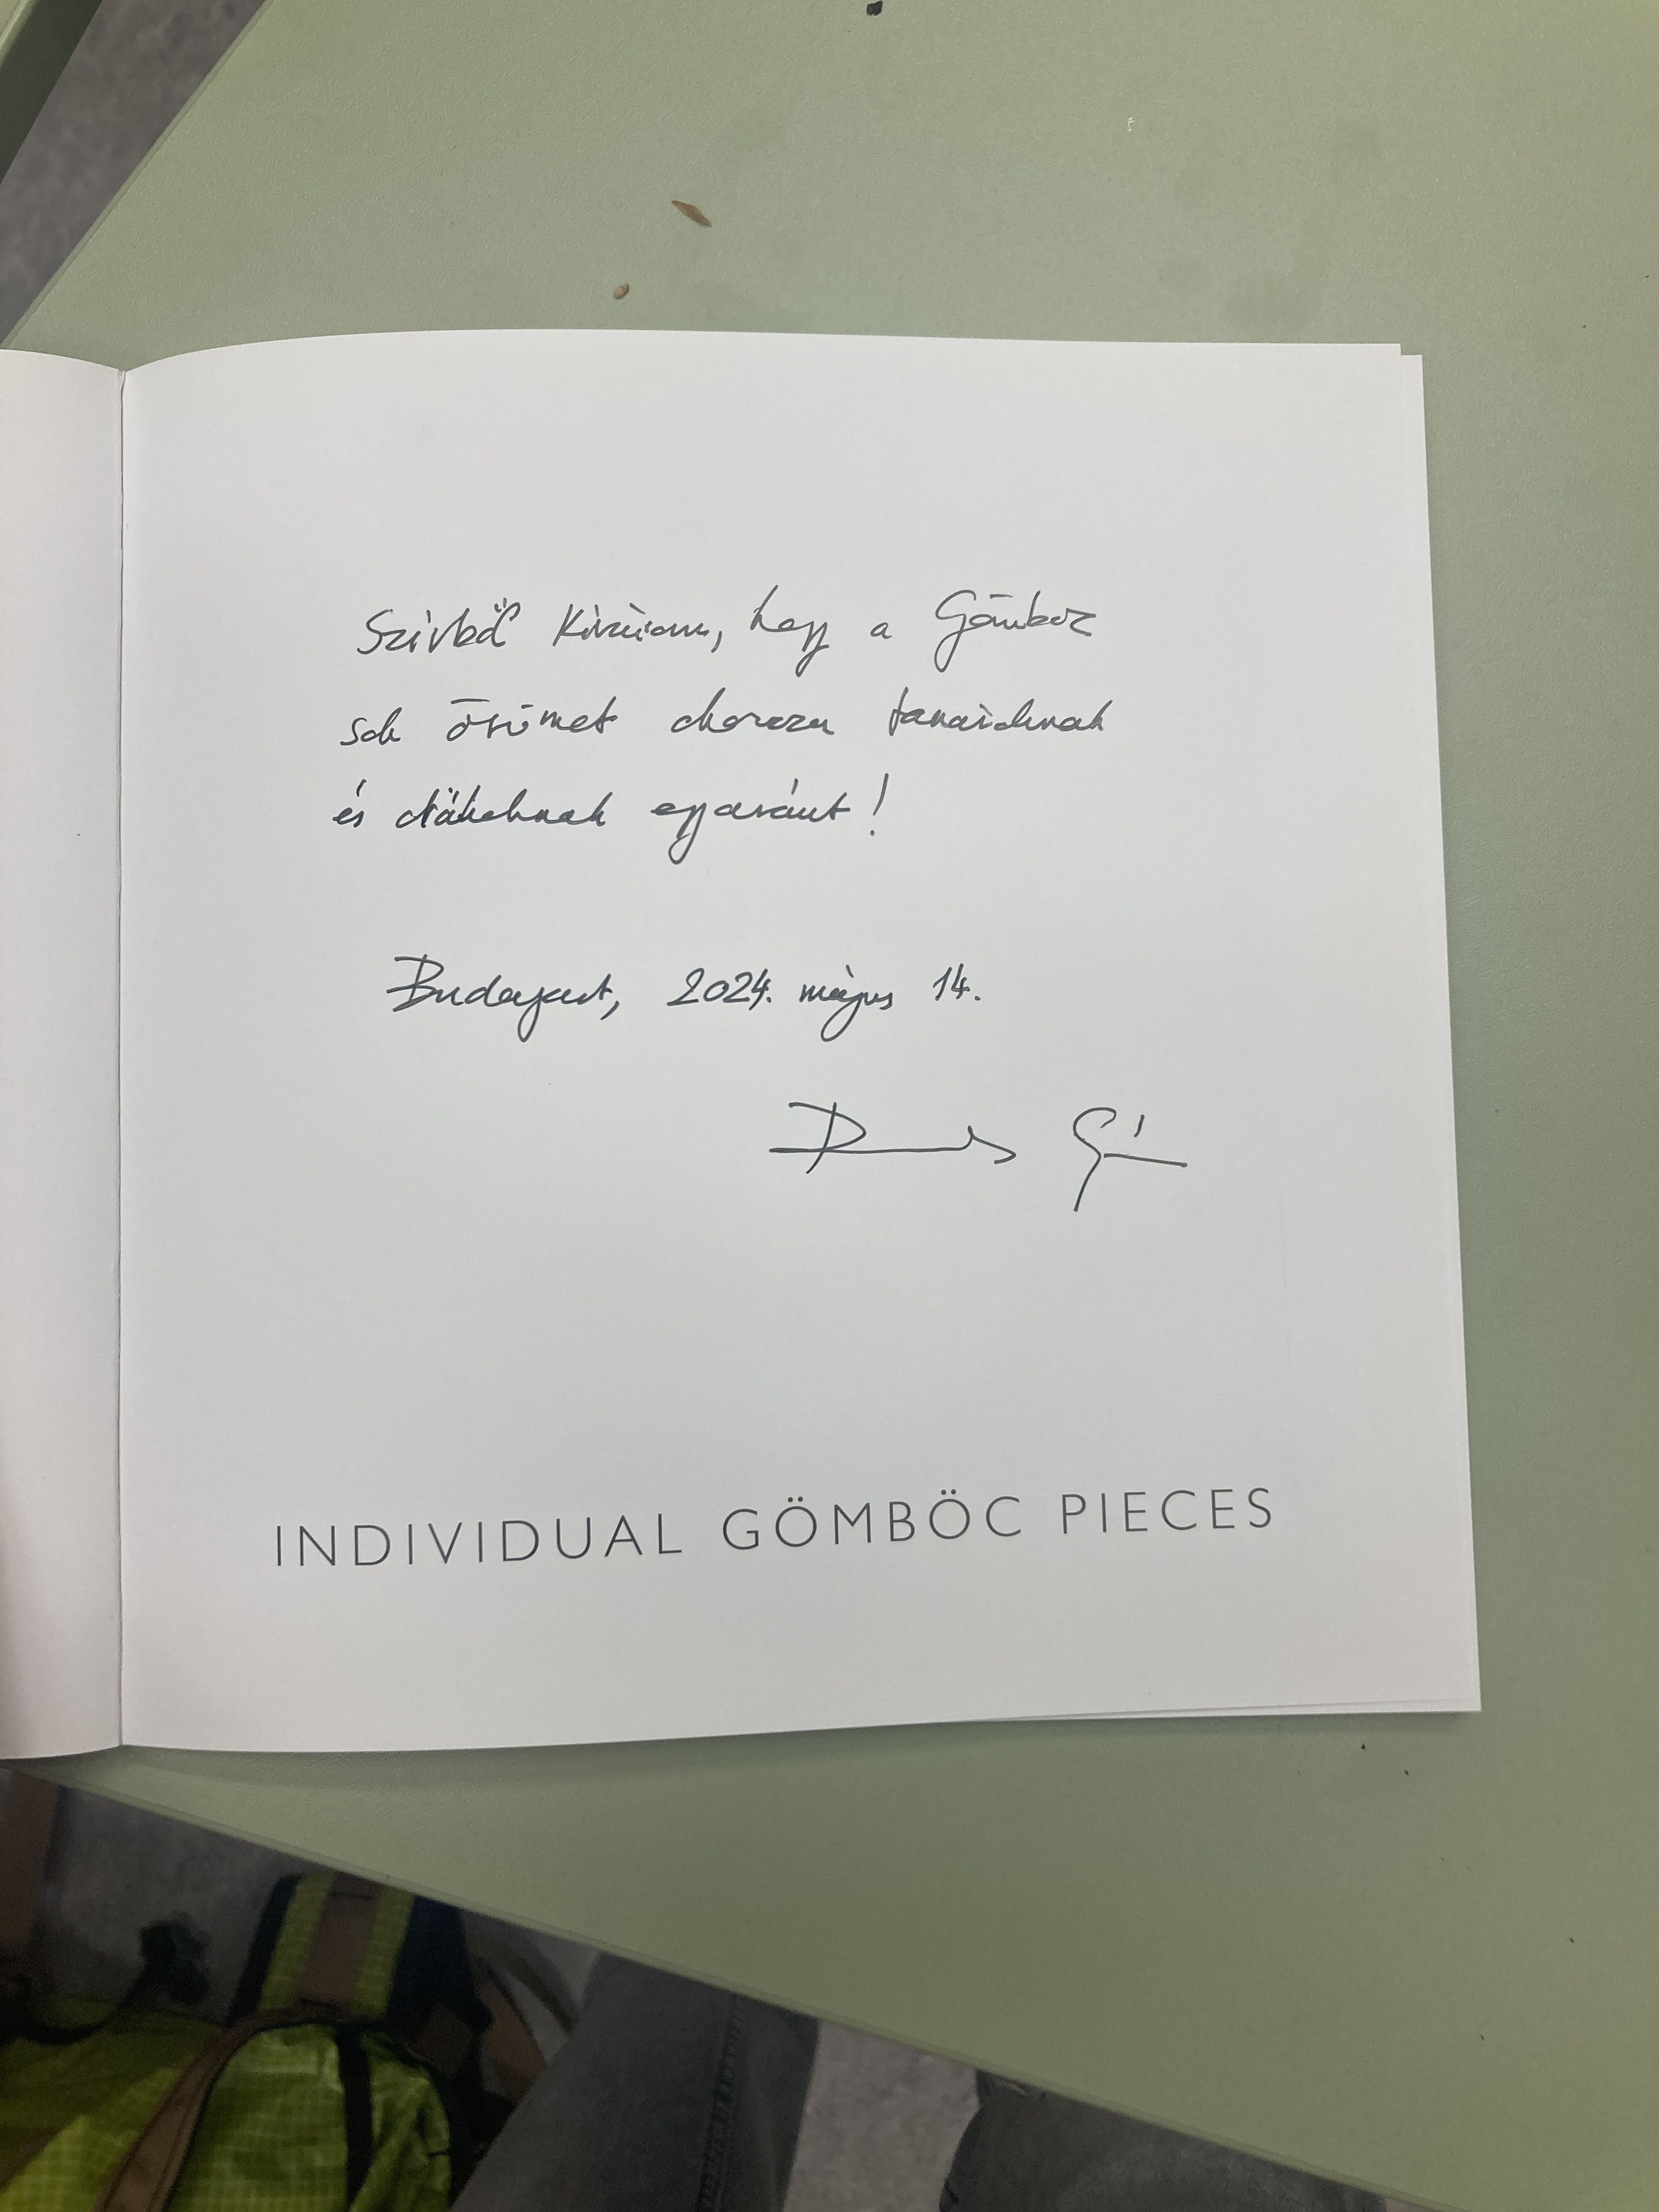 Szívből kívánom, hogy a Gömböc
sok örömet okozzon tanároknak
és diákoknak egyaránt!
Budapest, 2024. május 14.
INDIVIDUAL GÖMBÖC PIECES